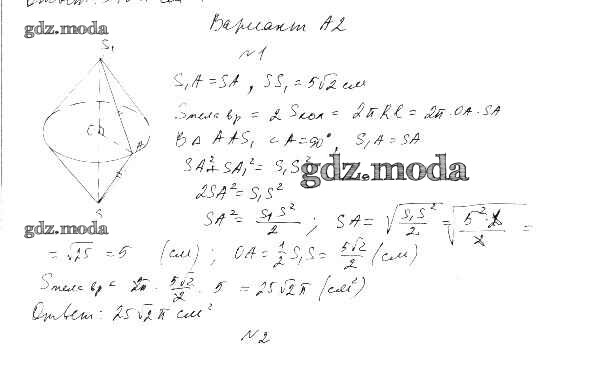 gdz.moda
Вариант А2
№1
S₁
S₁A = SA, SS₁ = 5√2 см
Sтела вр = 2 Sкон = 2πRl = 2π · OA · SA
В △ AAS, ∠A = 90°, S₁A = SA
A
S
SA² + SA₁² = S₁S²
gdz.moda
2SA² = S₁S²
gdz.moda
SA² = S₁S²/2 ; SA = √(S₁S²/2) = √(5²·2/2) =
= √25 = 5 (см) ; OA = 1/2 S₁S = 5√2/2 (см)
Sтела вр = 2π · 5√2/2 · 5 = 25√2 π (см²)
Ответ: 25√2 π см²
№2